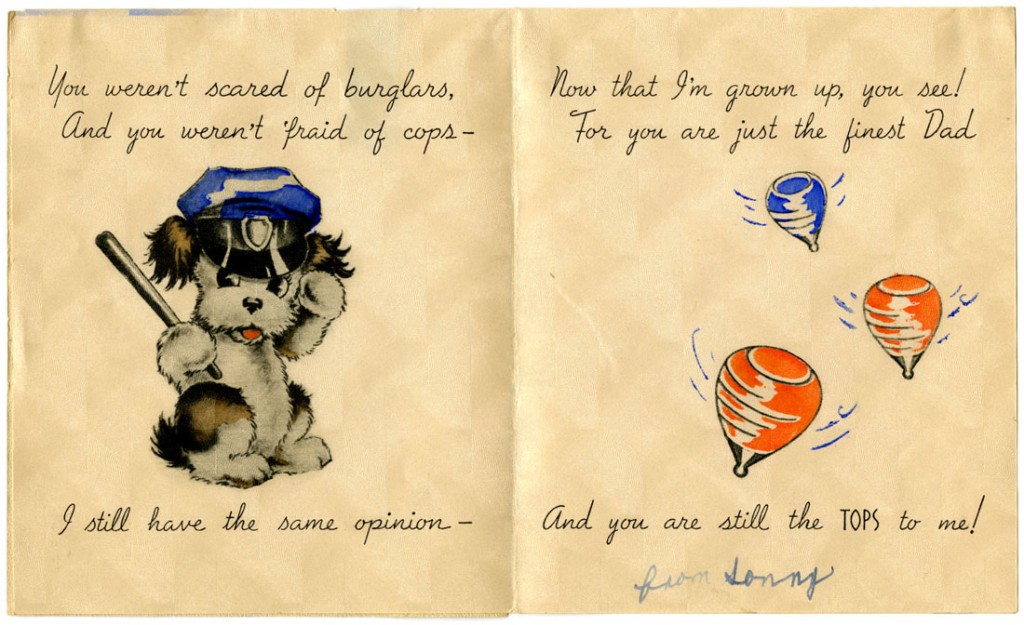 You weren't scared of burglars,
And you weren't 'fraid of cops—
I still have the same opinion—
Now that I'm grown up, you see!
For you are just the finest Dad
And you are still the TOPS to me!
from Sonny